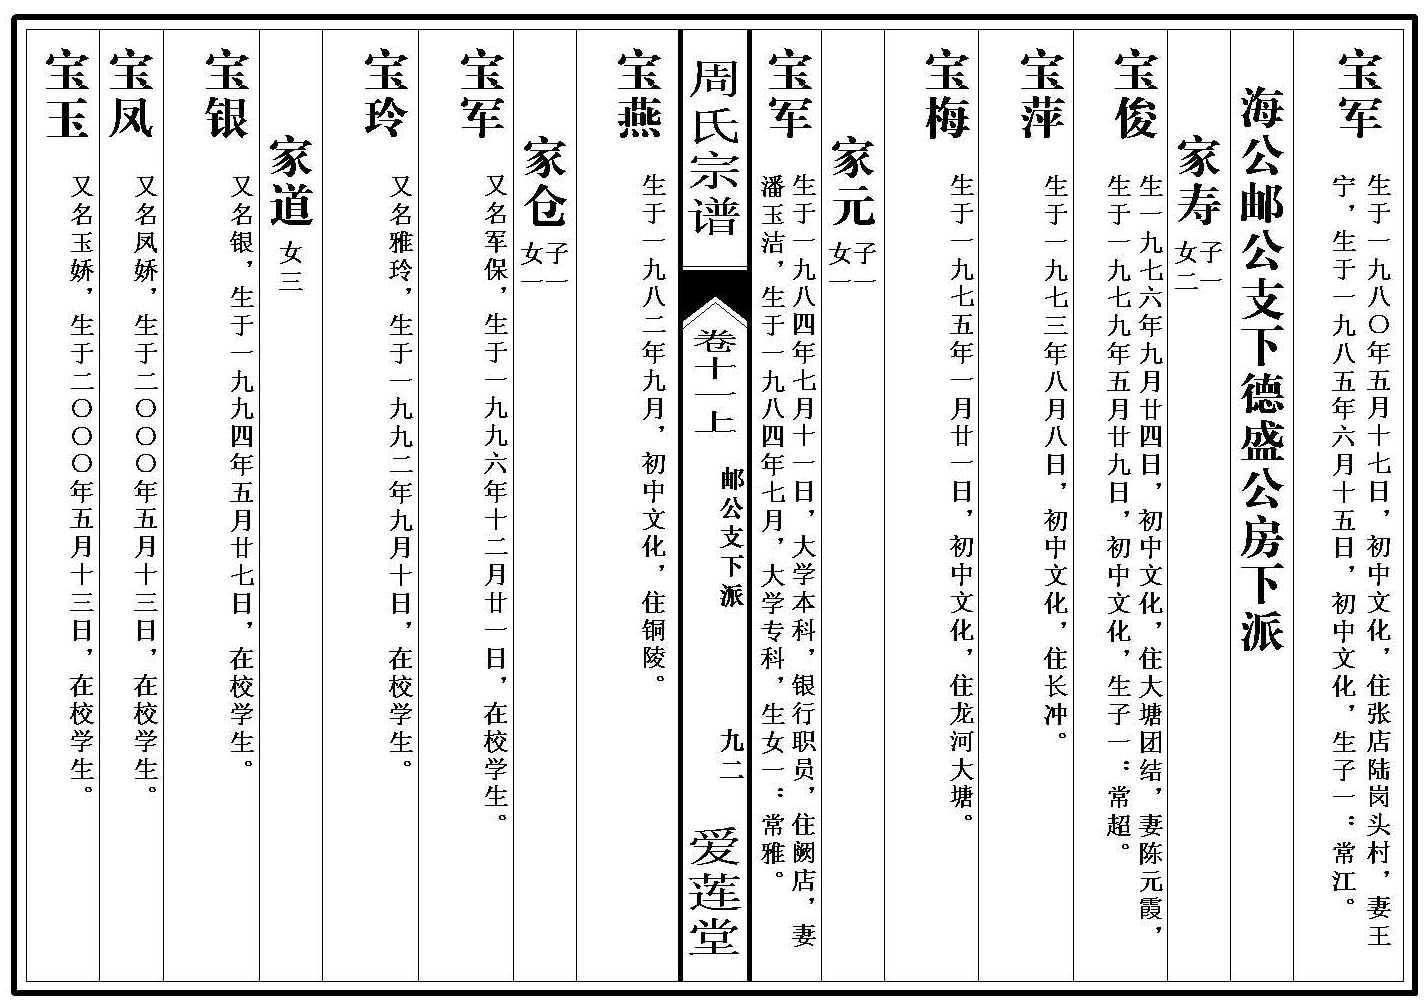 宝军
生于一九八〇年五月十七日，初中文化，住张店陆岗头村，妻王
宁，生于一九八五年六月十五日，初中文化，生子一：常江。
海公邮公支下德盛公房下派
家寿
子一
女二
宝俊
生一九七六年九月廿四日，初中文化，住大塘团结，妻陈元霞，
生于一九七九年五月廿九日，初中文化，生子一：常超。
宝萍
生于一九七三年八月八日，初中文化，住长冲。
宝梅
生于一九七五年一月廿一日，初中文化，住龙河大塘。
家元
子一
女一
宝军
生于一九八四年七月十一日，大学本科，银行职员，住阙店，妻
潘玉洁，生于一九八四年七月，大学专科，生女一：常雅。
周氏宗谱
卷十一上
邮公支下派
九二
爱莲堂
宝燕
生于一九八二年九月，初中文化，住铜陵。
家仓
子一
女一
宝军
又名军保，生于一九九六年十二月廿一日，在校学生。
宝玲
又名雅玲，生于一九九二年九月十日，在校学生。
家道
女三
宝银
又名银，生于一九九四年五月廿七日，在校学生。
宝凤
又名凤娇，生于二〇〇〇年五月十三日，在校学生。
宝玉
又名玉娇，生于二〇〇〇年五月十三日，在校学生。